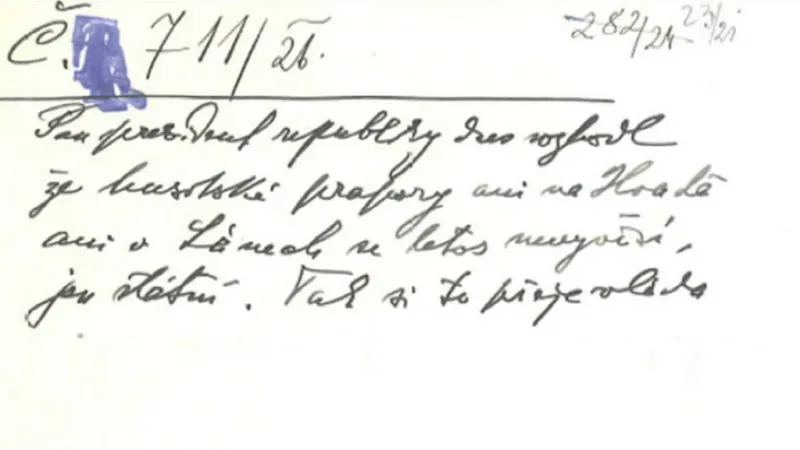 Č. 711/26. 282/24 23/21
Pan president republiky dnes rozhodl
že husitské prapory ani na Hradě
ani v Lánech se letos nevyvěsí,
jen státní. Tak si to přeje vláda